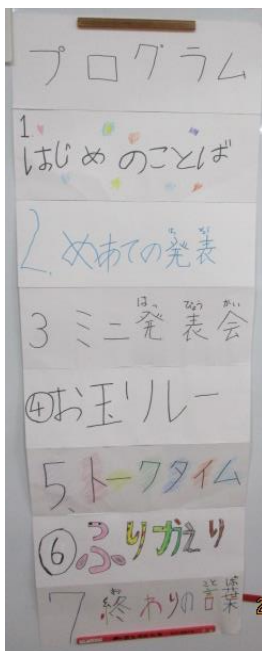 プログラム
1. はじめのことば
2. めあての発表
3 ミニ発表会
④お玉リレー
5. トークタイム
⑥ふりかえり
7 終わりの言葉